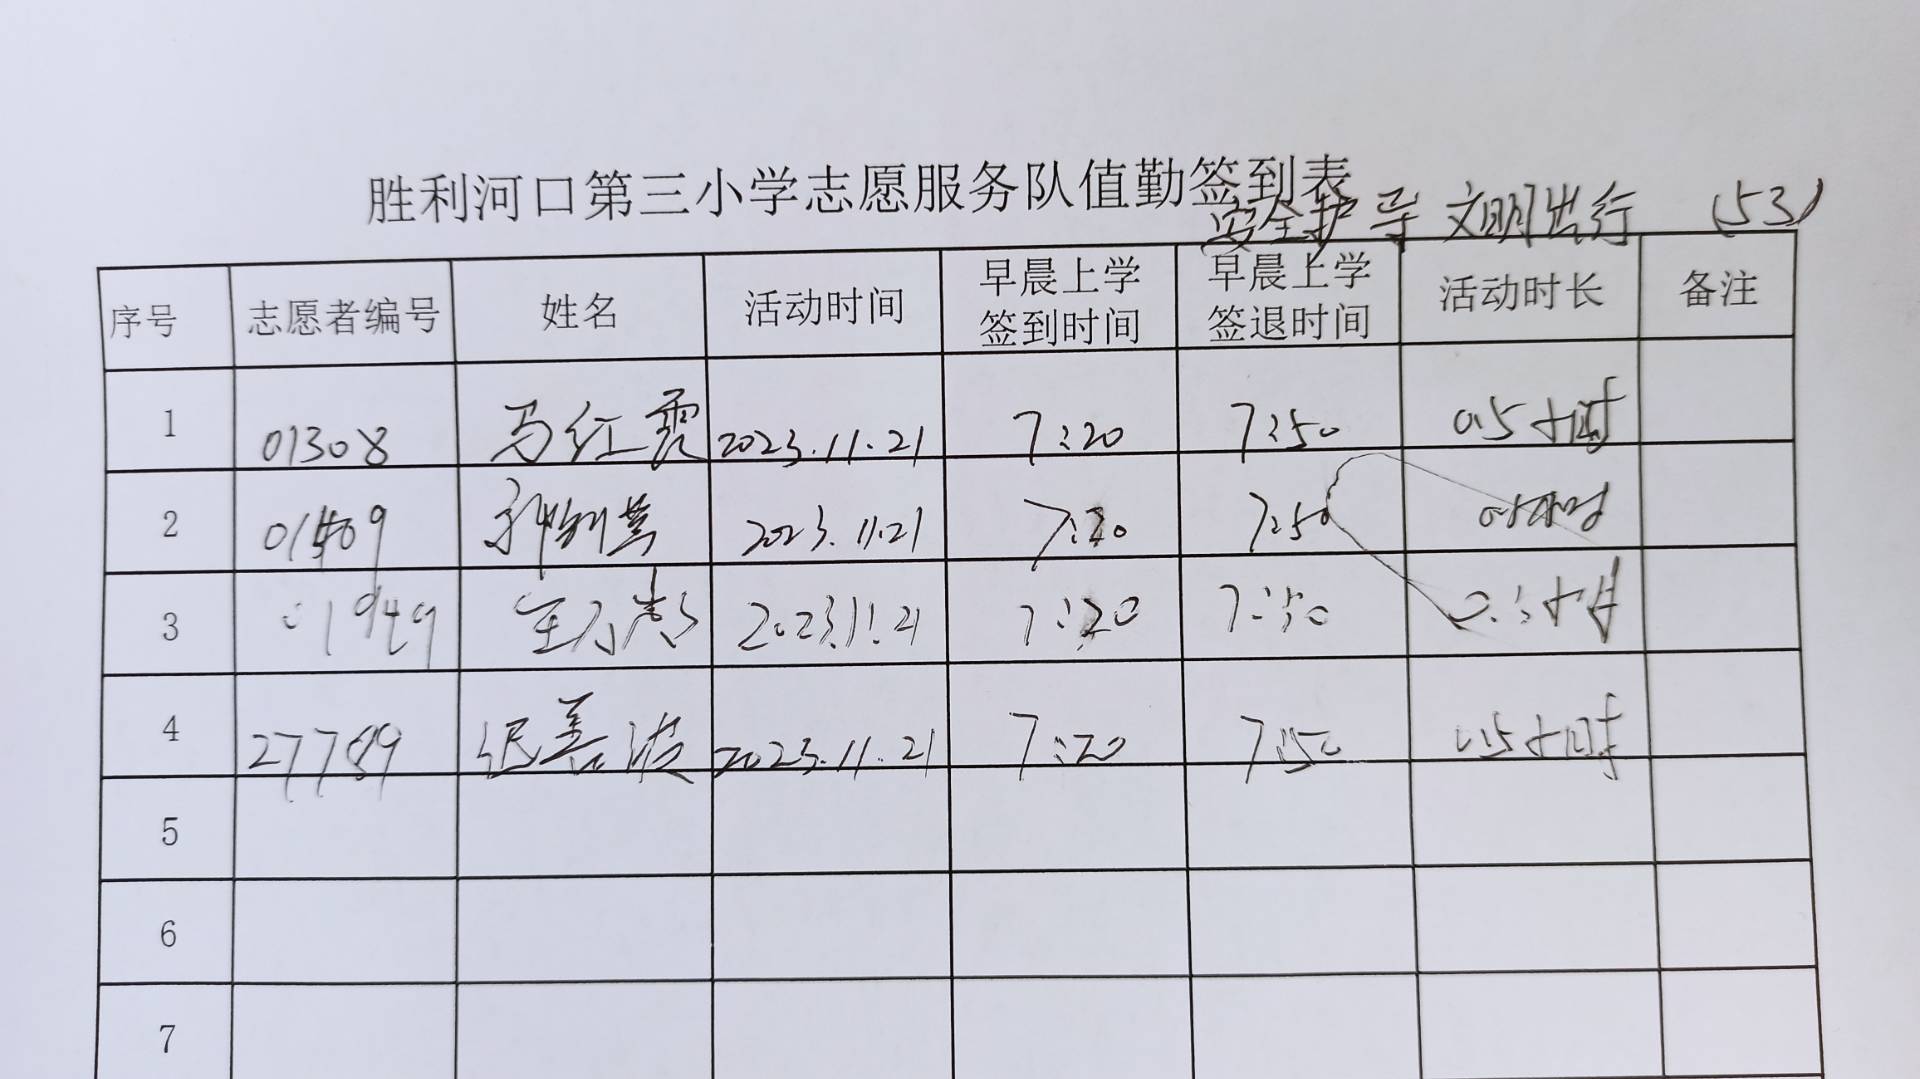 胜利河口第三小学志愿服务队值勤签到表
安全护导 文明出行 (53)
序号 志愿者编号 姓名 活动时间 早晨上学签到时间 早晨上学签退时间 活动时长 备注
1 01308 马红霞 2023.11.21 7:20 7:50 0.5小时
2 2023.11.21 7:20 7:50 0.5小时
3 01949 2023.11.21 7:20 7:50 0.5小时
4 27789 迟善波 2023.11.21 7:20 7:50 0.5小时
5
6
7